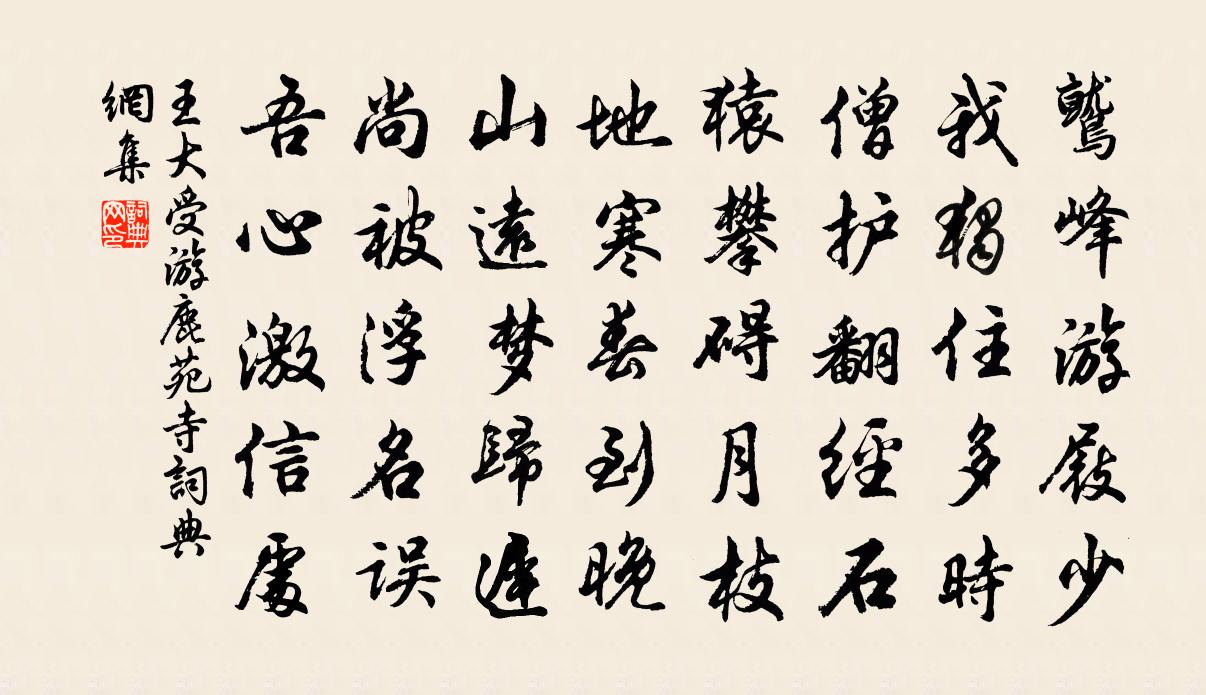 鹫峰游屐少
我独住多時
僧护翻經石
猿攀碍月枝
地寒春到晚
山遠梦歸遲
尚被浮名误
吾心激信處
王大受游鹿苑寺詞典
網集
詞典網印